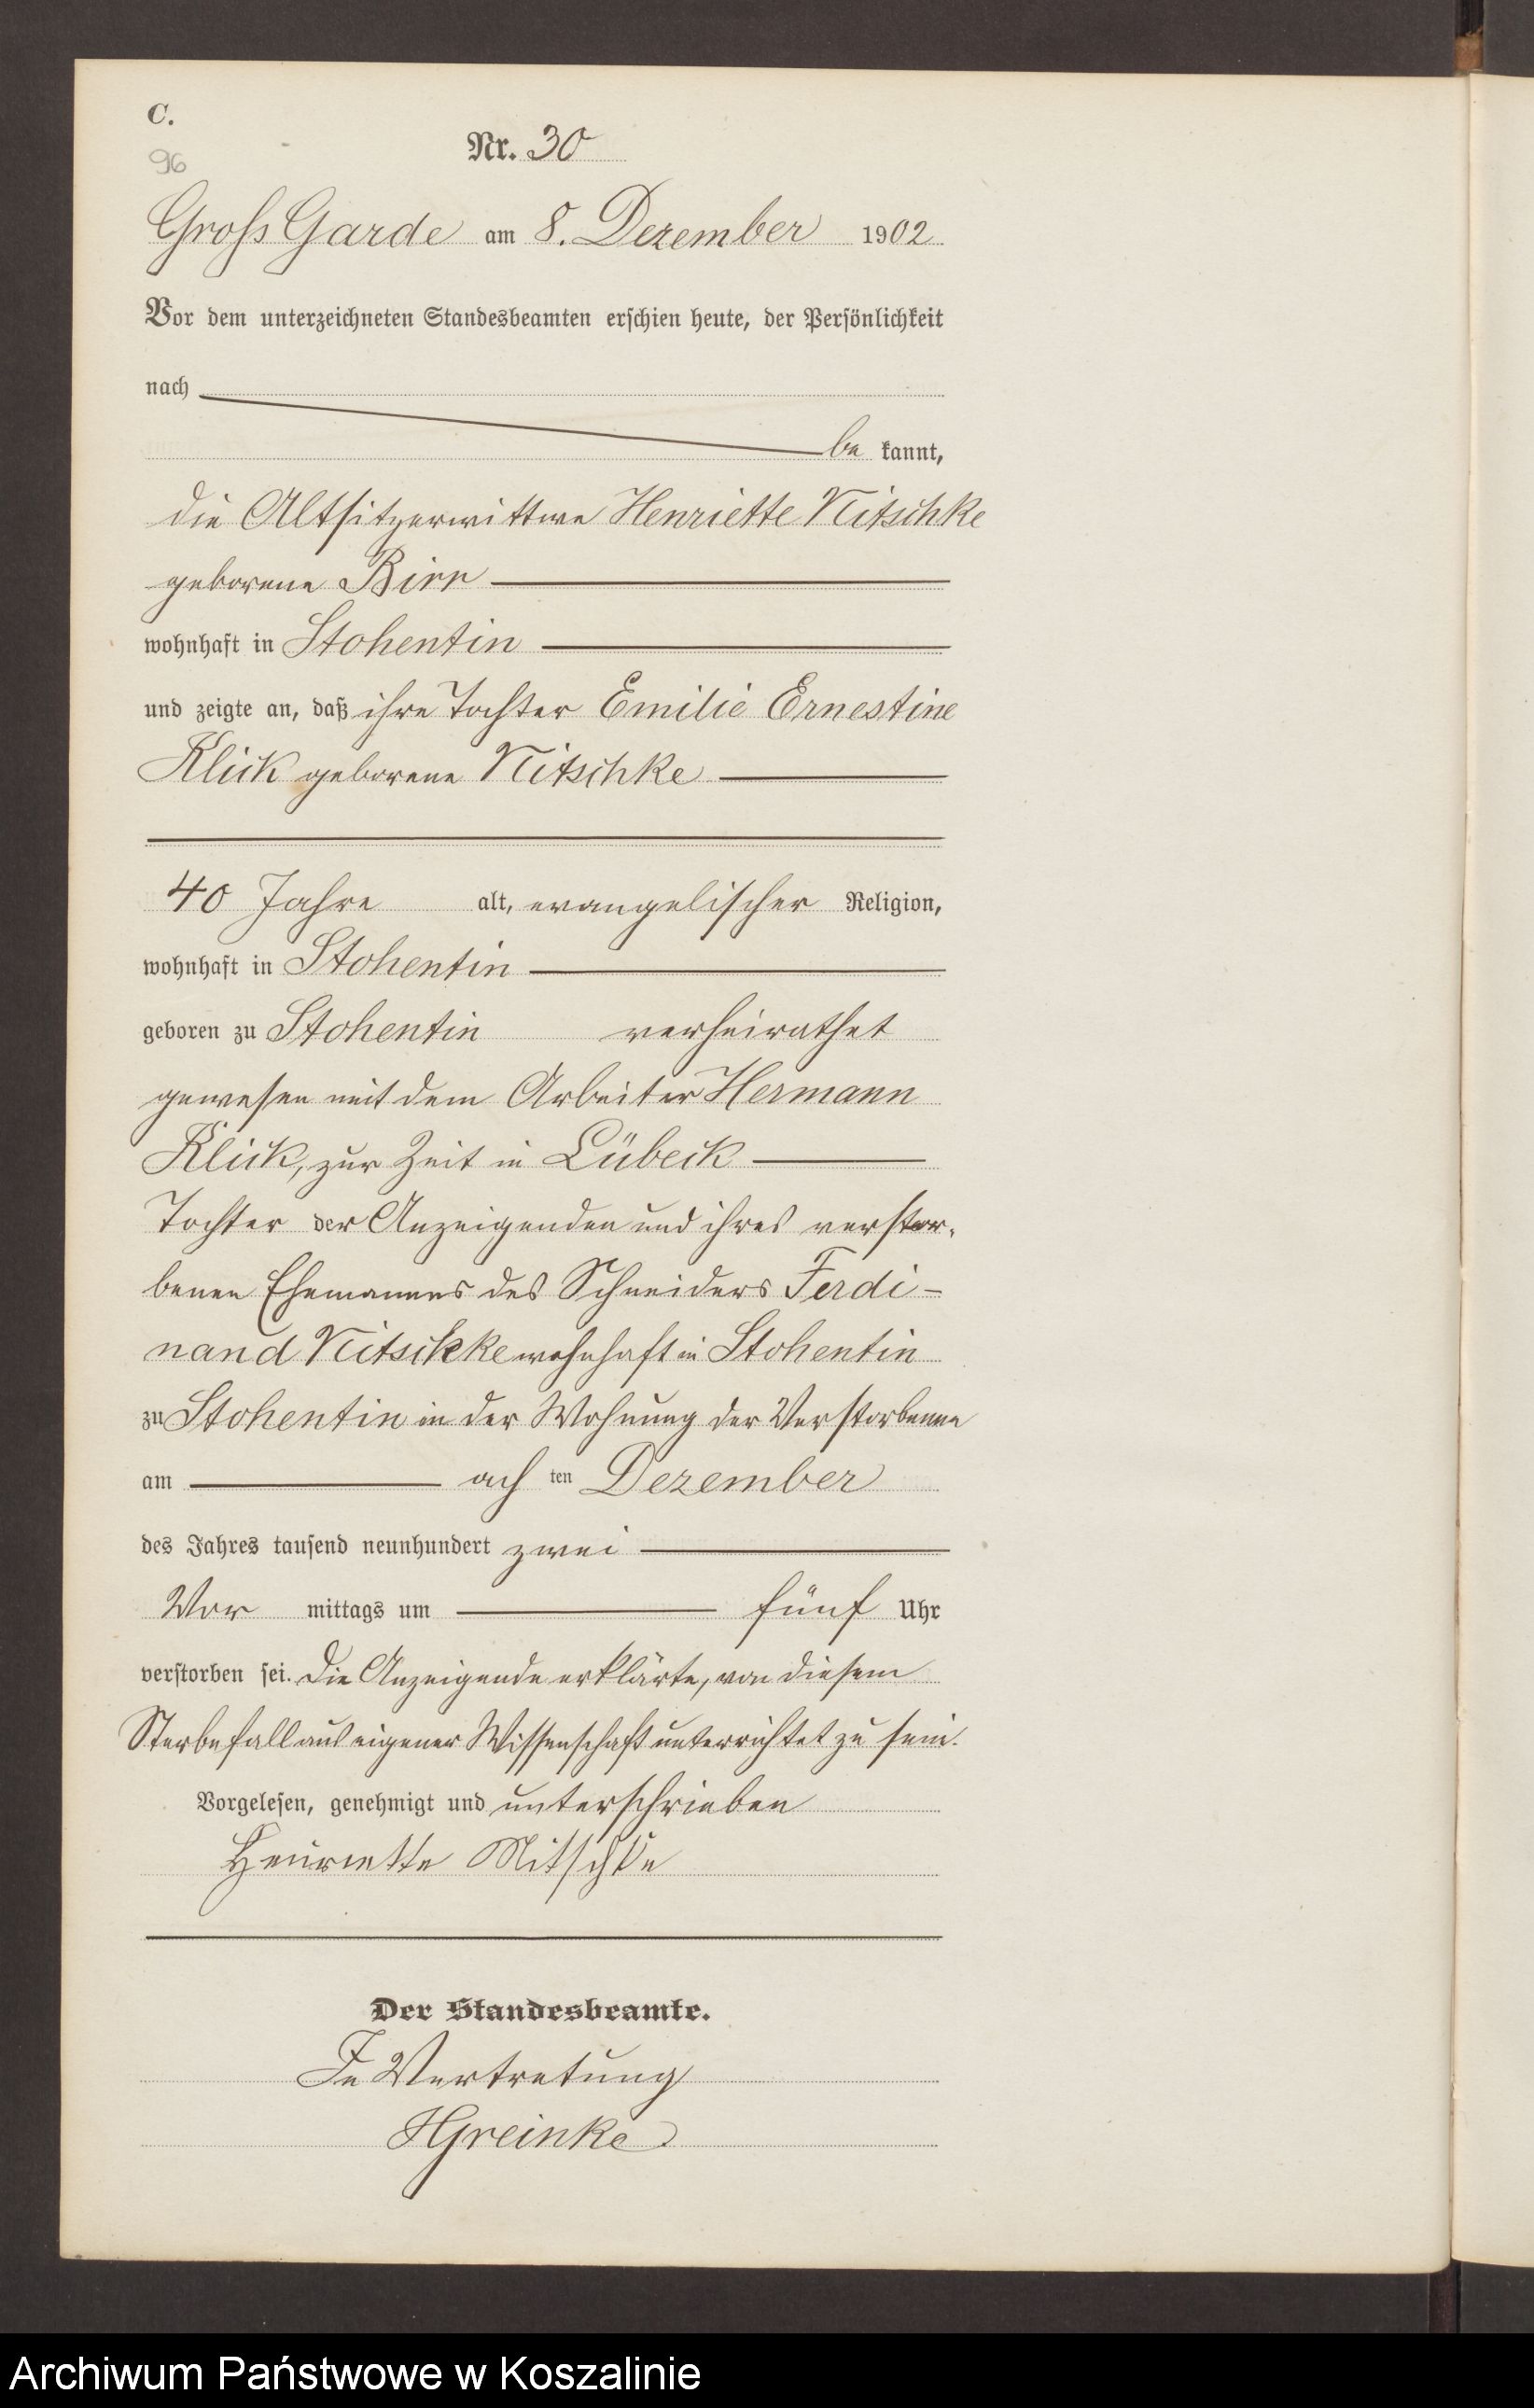 C.
96
Nr. 30
Gross Garde am 8. Dezember 1902
Vor dem unterzeichneten Standesbeamten erschien heute, der Persönlichkeit
nach
be kannt,
die Altsitzerwittwe Henriette Nitschke
geborene Birr
wohnhaft in Stohentin
und zeigte an, daß ihre Tochter Emilie Ernestine
Klick geborene Nitschke
40 Jahre alt, evangelischer Religion,
wohnhaft in Stohentin
geboren zu Stohentin verheirathet
gewesen mit dem Arbeiter Hermann
Klick, zur Zeit in Lübeck
Tochter der Anzeigenden und ihres verstor-
benen Ehemannes des Schneiders Ferdi-
nand Nitschke wohnhaft in Stohentin
zu Stohentin in der Wohnung der Verstorbenen
am ach ten Dezember
des Jahres tausend neunhundert zwei
Vor mittags um fünf Uhr
verstorben sei. Die Anzeigende erklärte, von diesem
Sterbefall aus eigener Wissenschaft unterrichtet zu sein.
Vorgelesen, genehmigt und unterschrieben
Henriette Nitschke
Der Standesbeamte.
In Vertretung
HGreinke
Archiwum Państwowe w Koszalinie